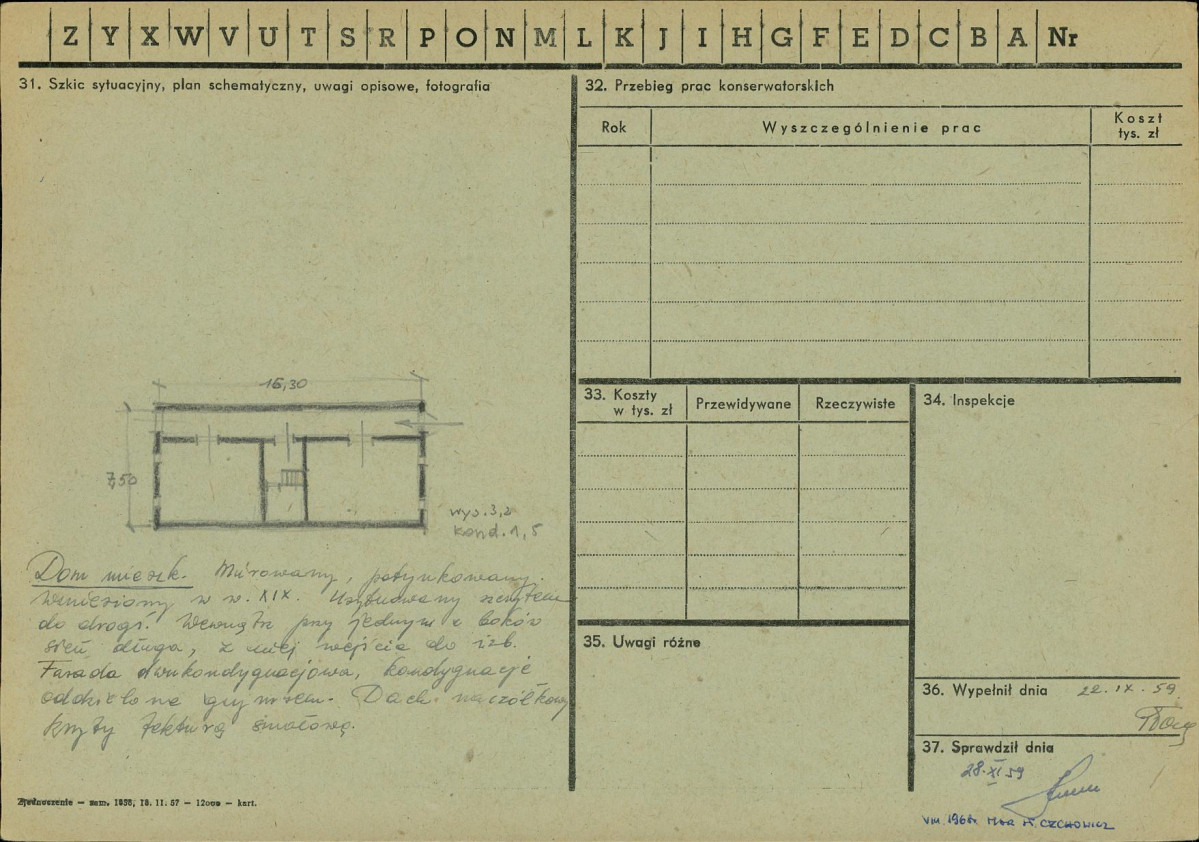 Z Y X W V U T S R P O N M L K J I H G F E D C B A Nr
31. Szkic sytuacyjny, plan schematyczny, uwagi opisowe, fotografia
16,30
7,50
wys. 3,2
kond. 1,5
Dom mieszk. Murowany, potynkowany.
Wzniesiony w w. XIX. Usytuowany szczytem
do drogi. Wewnątrz przy jednym z boków
sień długa, z niej wejścia do izb.
Fasada dwukondygnacjowa, kondygnacje
oddzielone gzymsem. Dach naczółkowy
kryty tekturą smołową.
Zjednoczenie — zam. 1038, 18. 11. 57 — 12000 — kart.
32. Przebieg prac konserwatorskich
Rok
Wyszczególnienie prac
Koszt
tys. zł
33. Koszty
w tys. zł
Przewidywane
Rzeczywiste
34. Inspekcje
35. Uwagi różne
36. Wypełnił dnia 22. IX. 59
37. Sprawdził dnia
28. XI 59
VIII 1968 MGR M. CZCHOWICZ